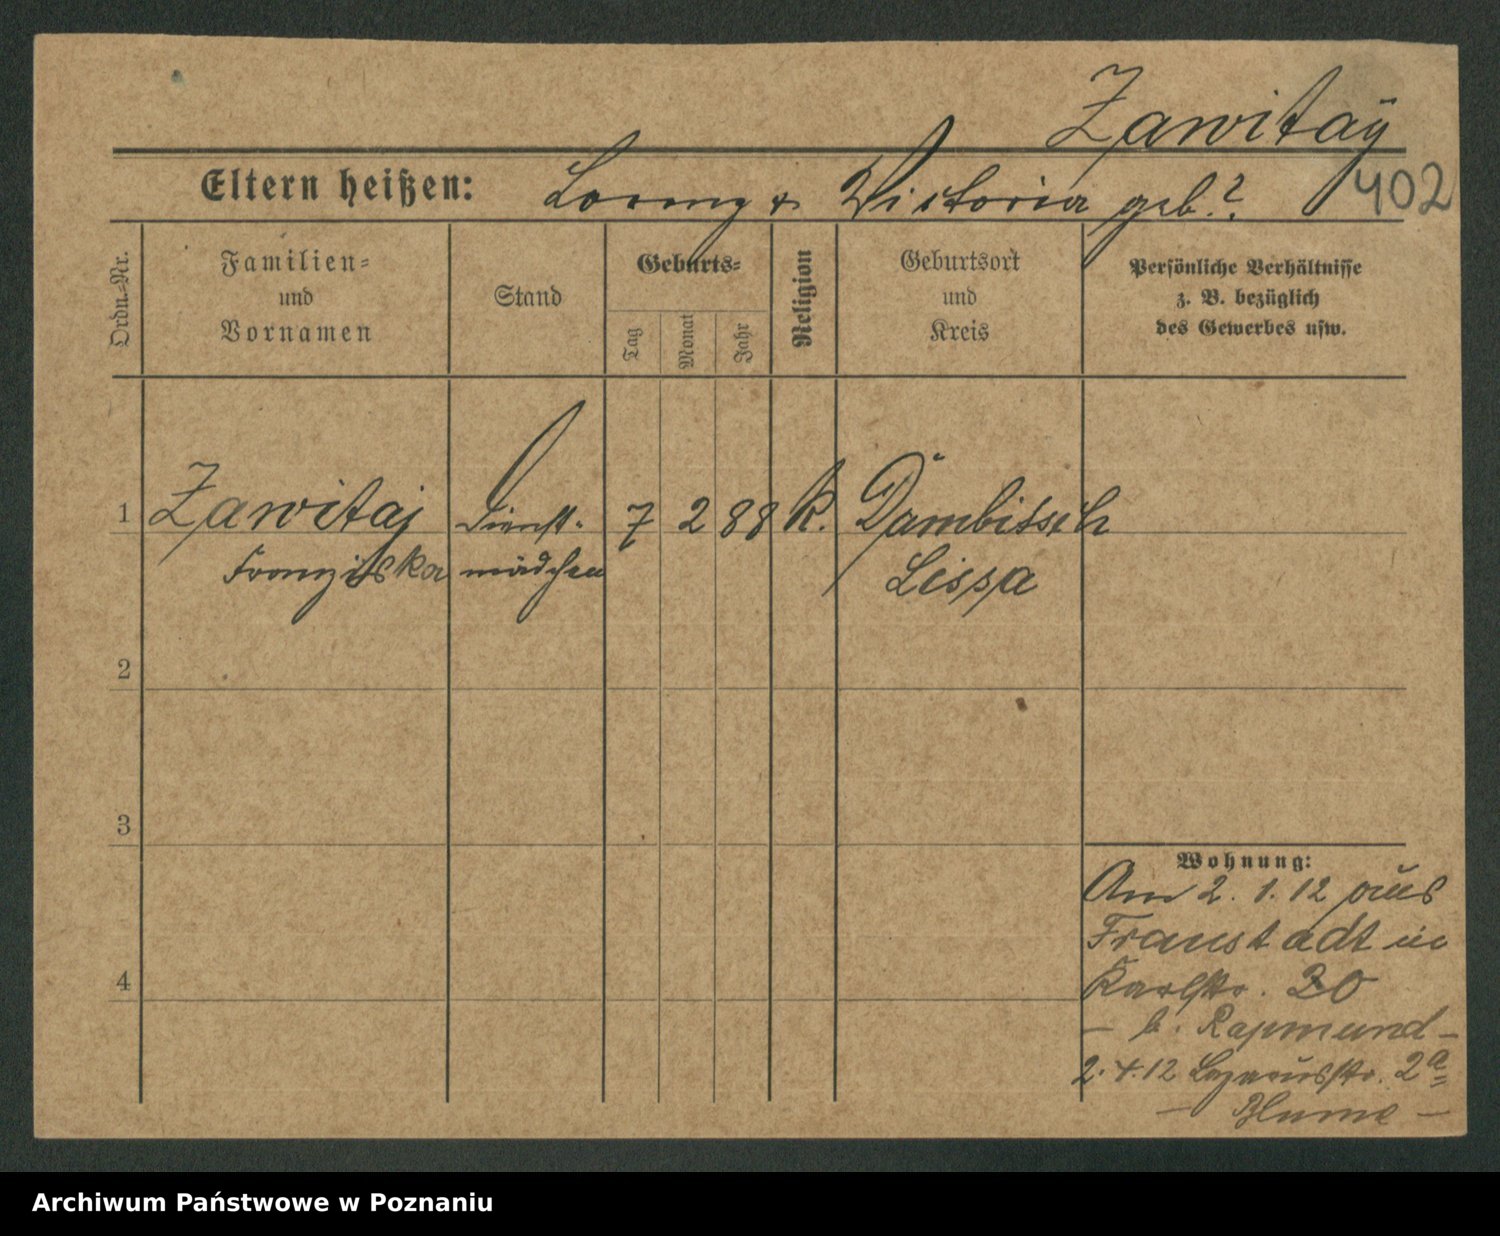 Zawitaÿ
402
Eltern heißen: Lorenz & Victoria geb.?
Ordn.-Nr.
Familien-
und
Vornamen
Stand
Geburts-
Tag
Monat
Jahr
Religion
Geburtsort
und
Kreis
Persönliche Verhältnisse
z. B. bezüglich
des Gewerbes usw.
1 Zawitaj Dienst- 7 2 88 K. Dambitsch
Franziska mädchen Lissa
2
3
4
Wohnung:
Am 2. 1. 12 aus
Fraustadt in
Karlstr. 20
– b. Rapmund –
2. 4. 12 Lazarusstr. 2a
– Blume –
Archiwum Państwowe w Poznaniu